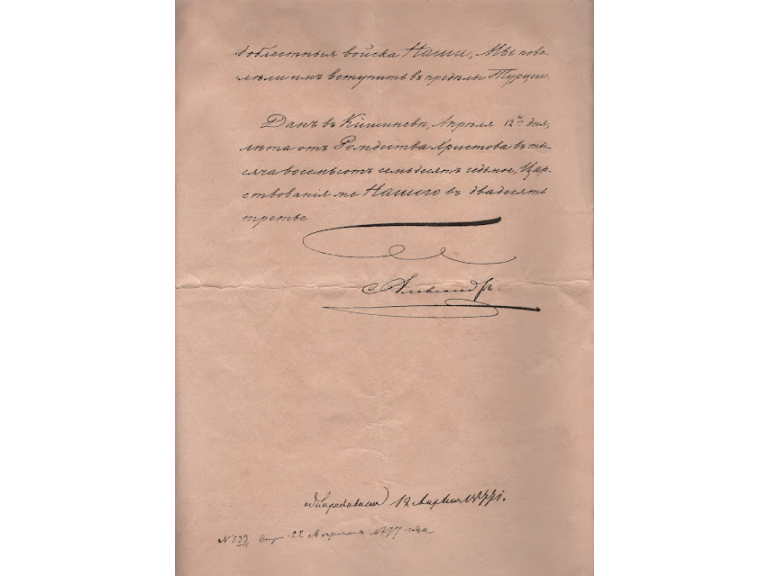 доблестныя войска Наши, Мы пове-
лѣли имъ вступить въ предѣлы Турціи.
Данъ въ Кишиневѣ, Апрѣля 12го дня,
лѣта отъ Рождества Христова въ ты-
сяча восемьсотъ семьдесятъ седьмое, Цар-
ствованія же Нашего въ двадесять
третье
Александръ.
12 Апрѣля
№ 333 22 Апрѣля 1877 года